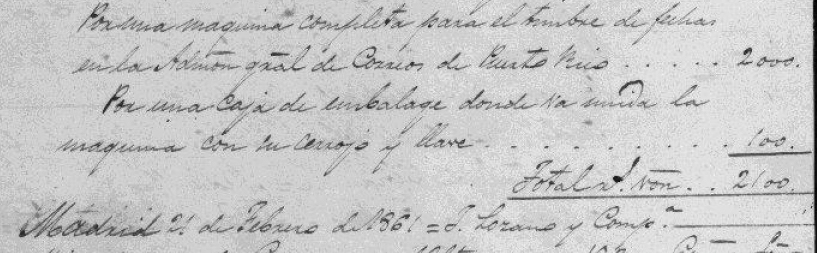 Por una maquina completa para el timbre de fechas
en la Admon gral de Correos de Puerto Rico . . . . . 2000.
Por una caja de embalage donde va unida la
maquina con su cerrojo y llave . . . . . . . . . . 100.
Total rs. von. . . 2100.
Madrid 21 de Febrero de 1861 = J. Lozano y Compª